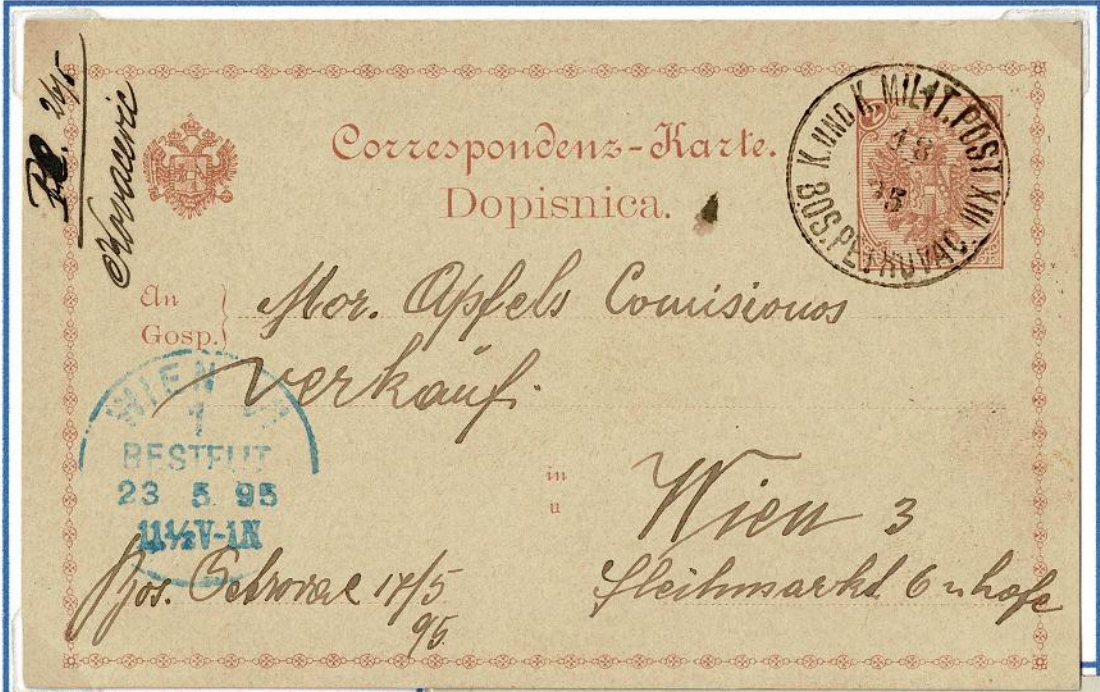 R. 26/5
Kovacevic
Correspondenz-Karte.
Dopisnica.
K. UND K. MILIT. POST XIII
BOS. PETROVAC
An
Gosp.
Mor. Apfels Comisionos
verkäuf.
in
u
Wien 3
fleihmarkt 6 n hofe
WIEN
1
BESTELLT
23 5 95
11½V-1N
Bos. Petrovac 17/5
95.